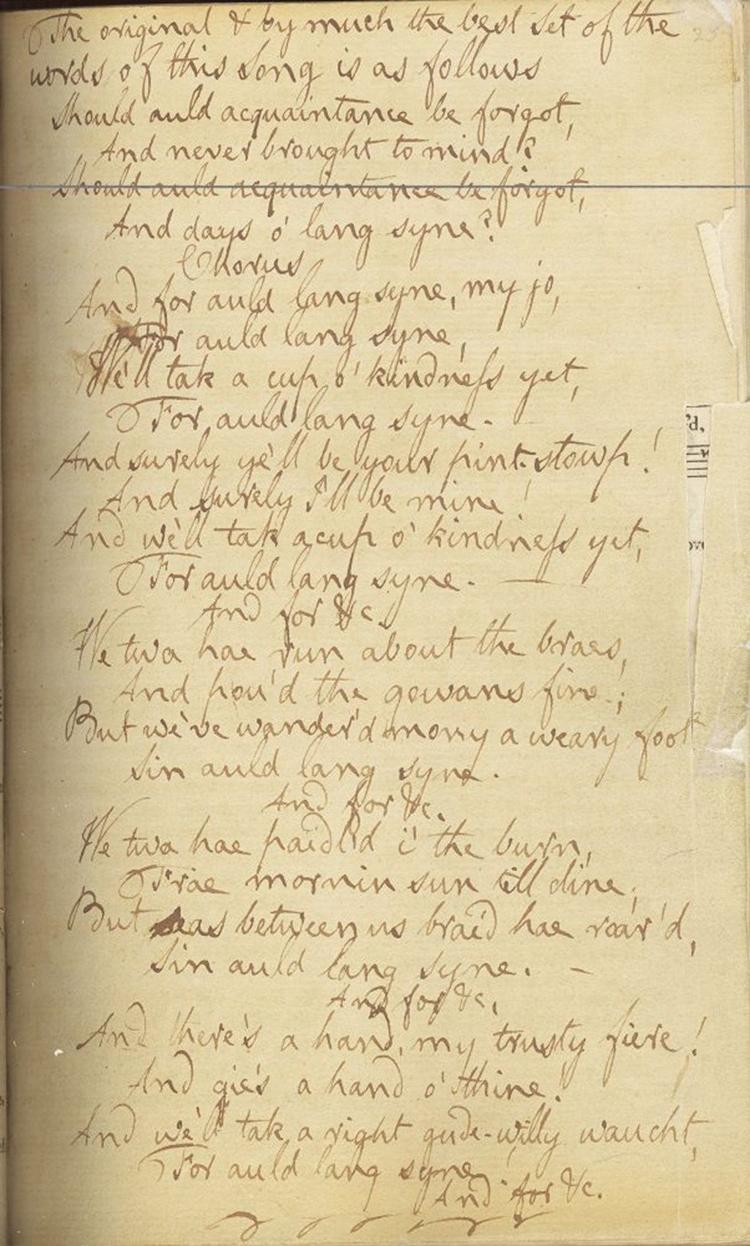 The original & by much the best set of the
words of this song is as follows
Should auld acquaintance be forgot,
And never brought to mind?
Should auld acquaintance be forgot,
And days o' lang syne?
Chorus
And for auld lang syne, my jo,
For auld lang syne,
We'll tak a cup o' kindneſs yet,
For auld lang syne.
And surely ye'll be your pint-stowp!
And surely I'll be mine!
And we'll tak a cup o' kindneſs yet,
For auld lang syne. —
And for &c.
We twa hae run about the braes,
And pou'd the gowans fine;
But we've wander'd mony a weary foot
Sin auld lang syne.
And for &c.
We twa hae paidl'd i' the burn,
Frae mornin sun till dine;
But seas between us braid hae roar'd,
Sin auld lang syne. —
And for &c.
And there's a hand, my trusty fiere!
And gie's a hand o' thine!
And we'll tak a right gude-willy waucht,
For auld lang syne!
And for &c.